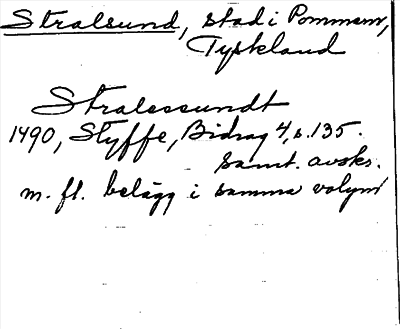 Stralsund, stad i Pommern,
Tyskland
Stralessundt
1490, Styffe, Bidrag 4, s. 135.
samt. avskr.
m. fl. belägg i samma volym